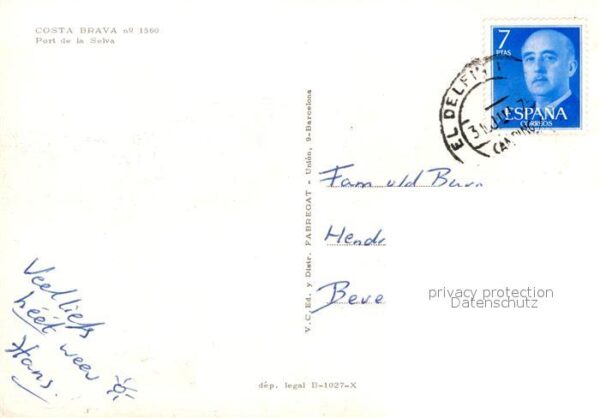 COSTA BRAVA nº 1560
Port de la Selva
7
PTAS
ESPAÑA
CORREOS
EL DELFIN
31 JUL
CAMPING
V. C. Ed. y Distr. FABREGAT - Unión, 9-Barcelona
Fam vld Burn
Hendr
Beve
privacy protection
Datenschutz
Veel liefs
héét weer
Hans.
dép. legal B-1027-X